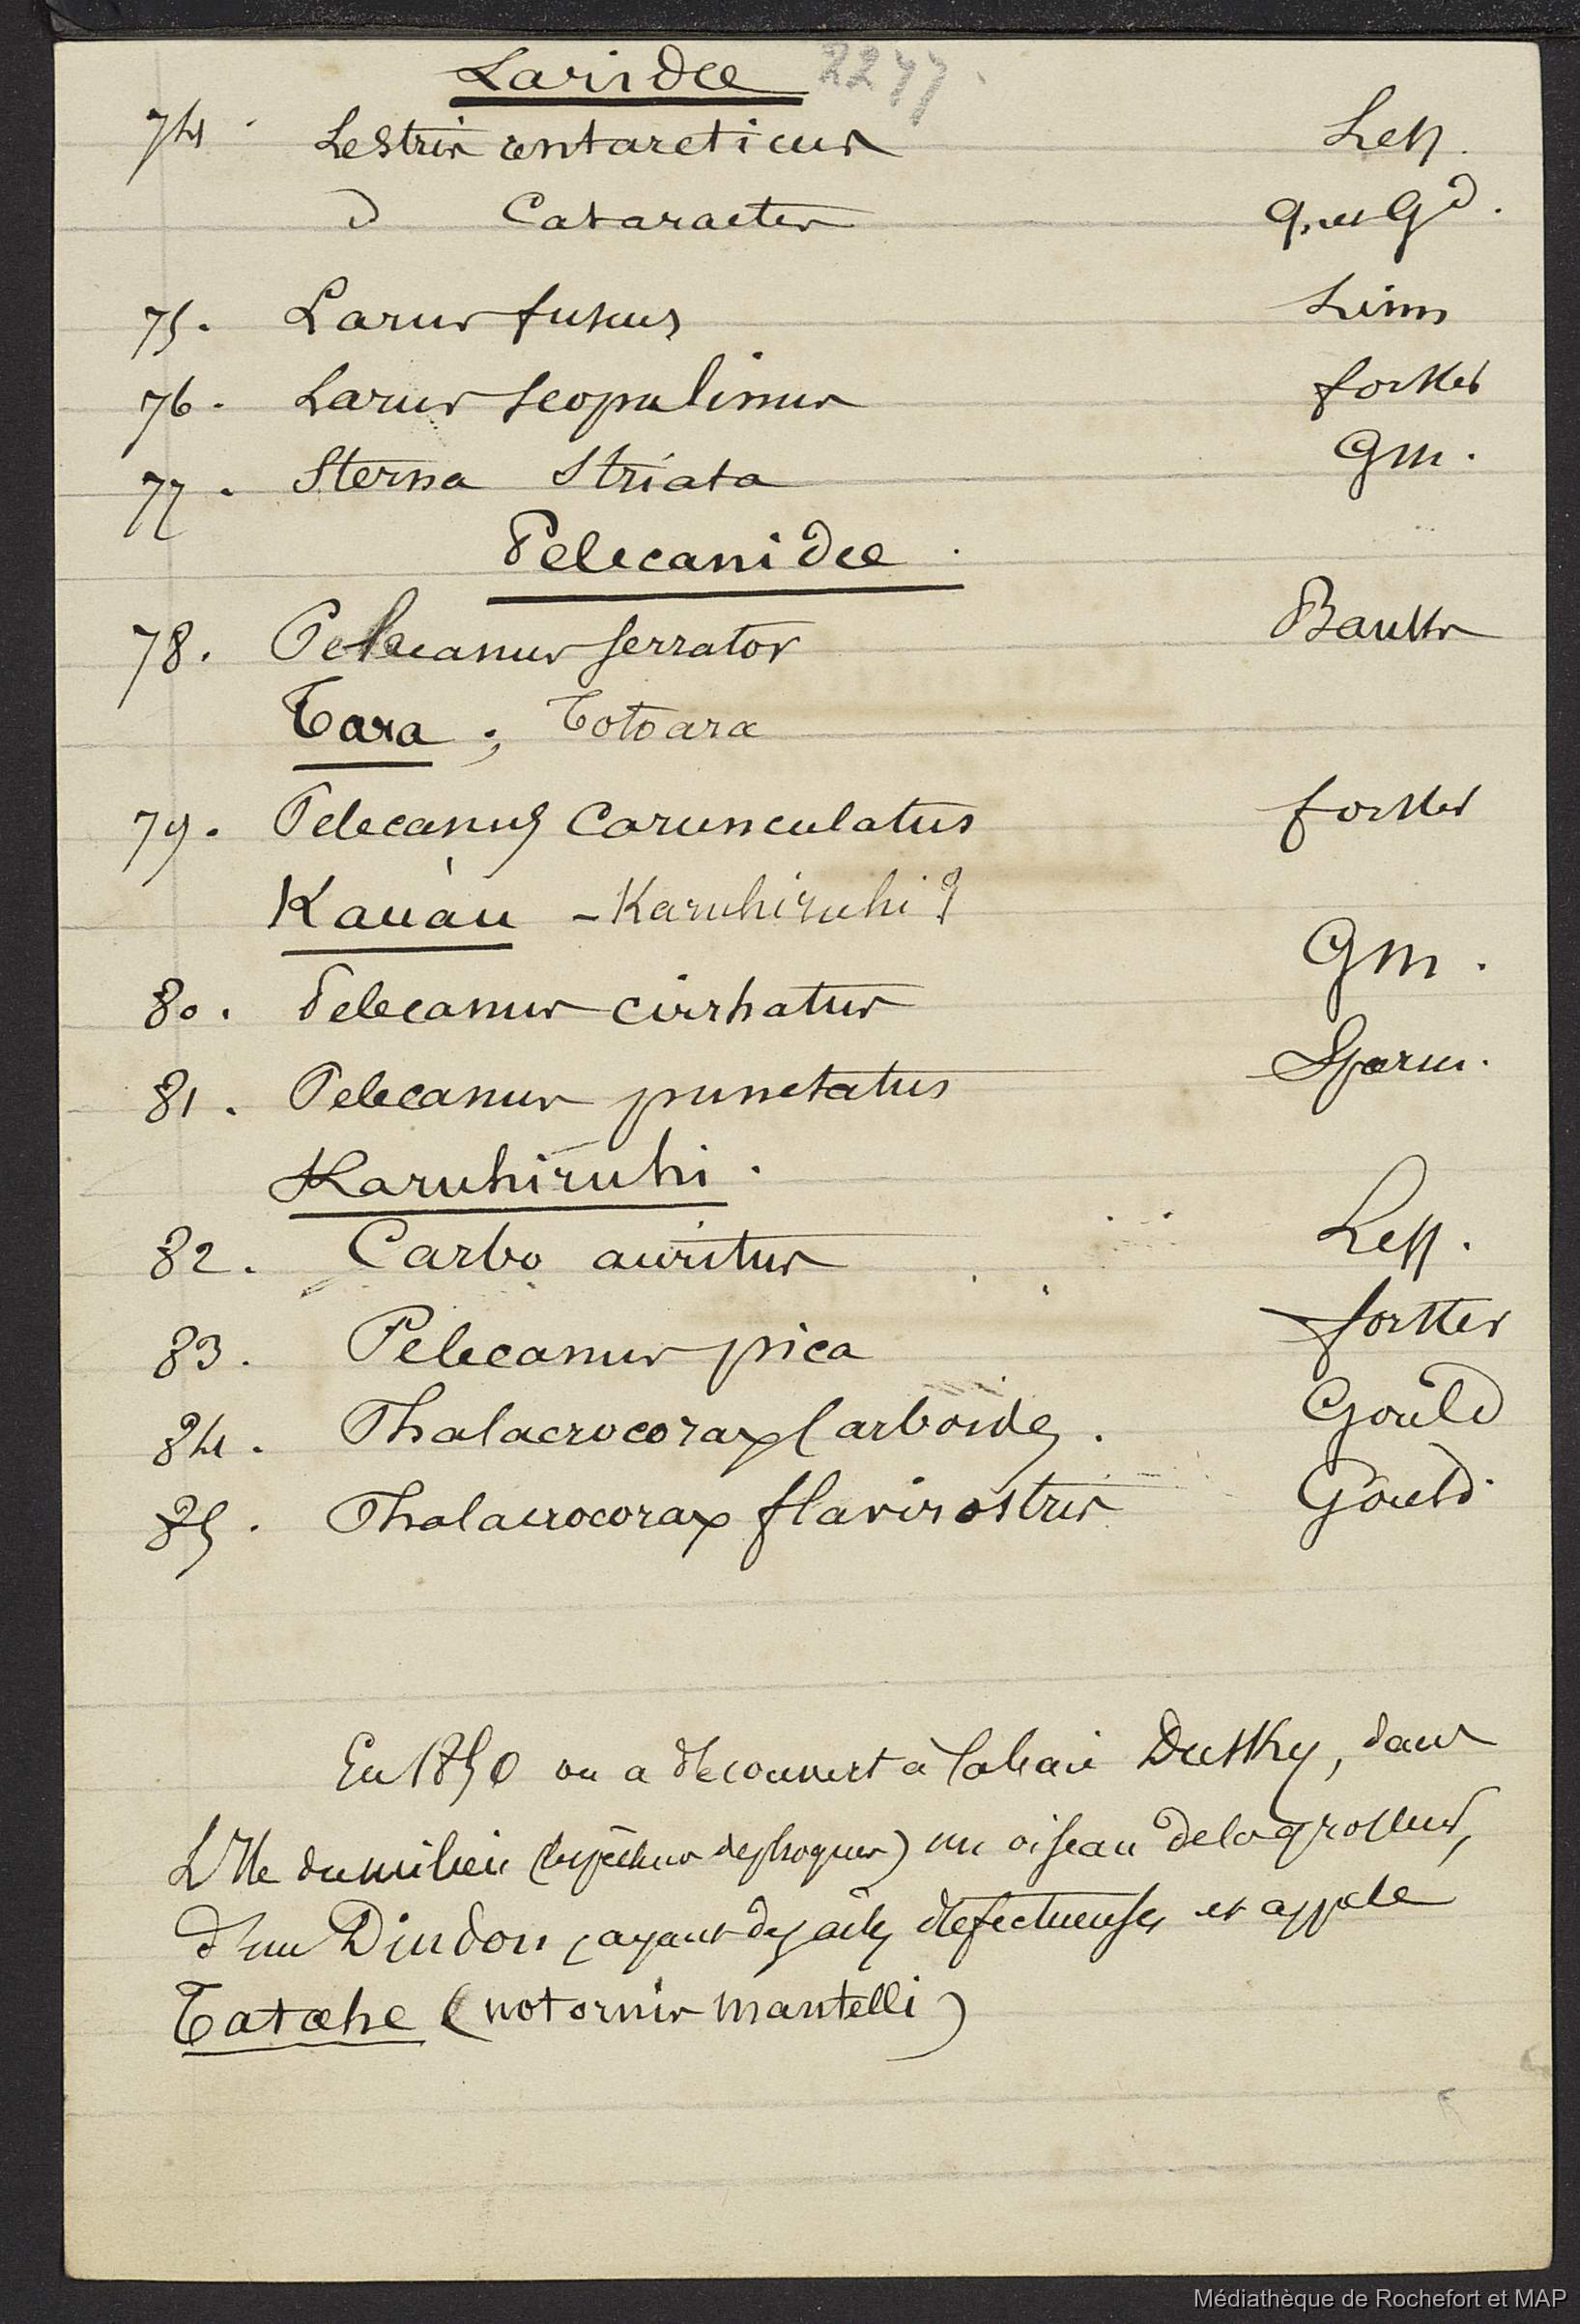 Laridæ 2277.
74. Lestris antarcticus Less.
d Cataractes q. et Gd.
75. Larus fuscus Linn
76. Larus scopulinus forster
77. Sterna Striata Gm.
Pelecanidæ.
78. Pelecanus serrator Banks
Tara; Totoara
79. Pelecanus Carunculatus forster
Kauàu - Karuhiruhi ?
80. Pelecanus cirrhatus Gm.
81. Pelecanus punctatus Sparm.
Karuhiruhi.
82. Carbo auritus Less.
83. Pelecanus pica forster
84. Phalacrocorax Carboides. Gould
85. Phalacrocorax flavirostris Gould.
En 1850 on a découvert à la baie Dussky, dans
L'Ile du milieu (les pêcheurs de phoques) un oiseau de la grosseur,
d'un Dindon, ayant des ailes défectueuses et appelé
Tatahe (notornis mantelli)
Médiathèque de Rochefort et MAP